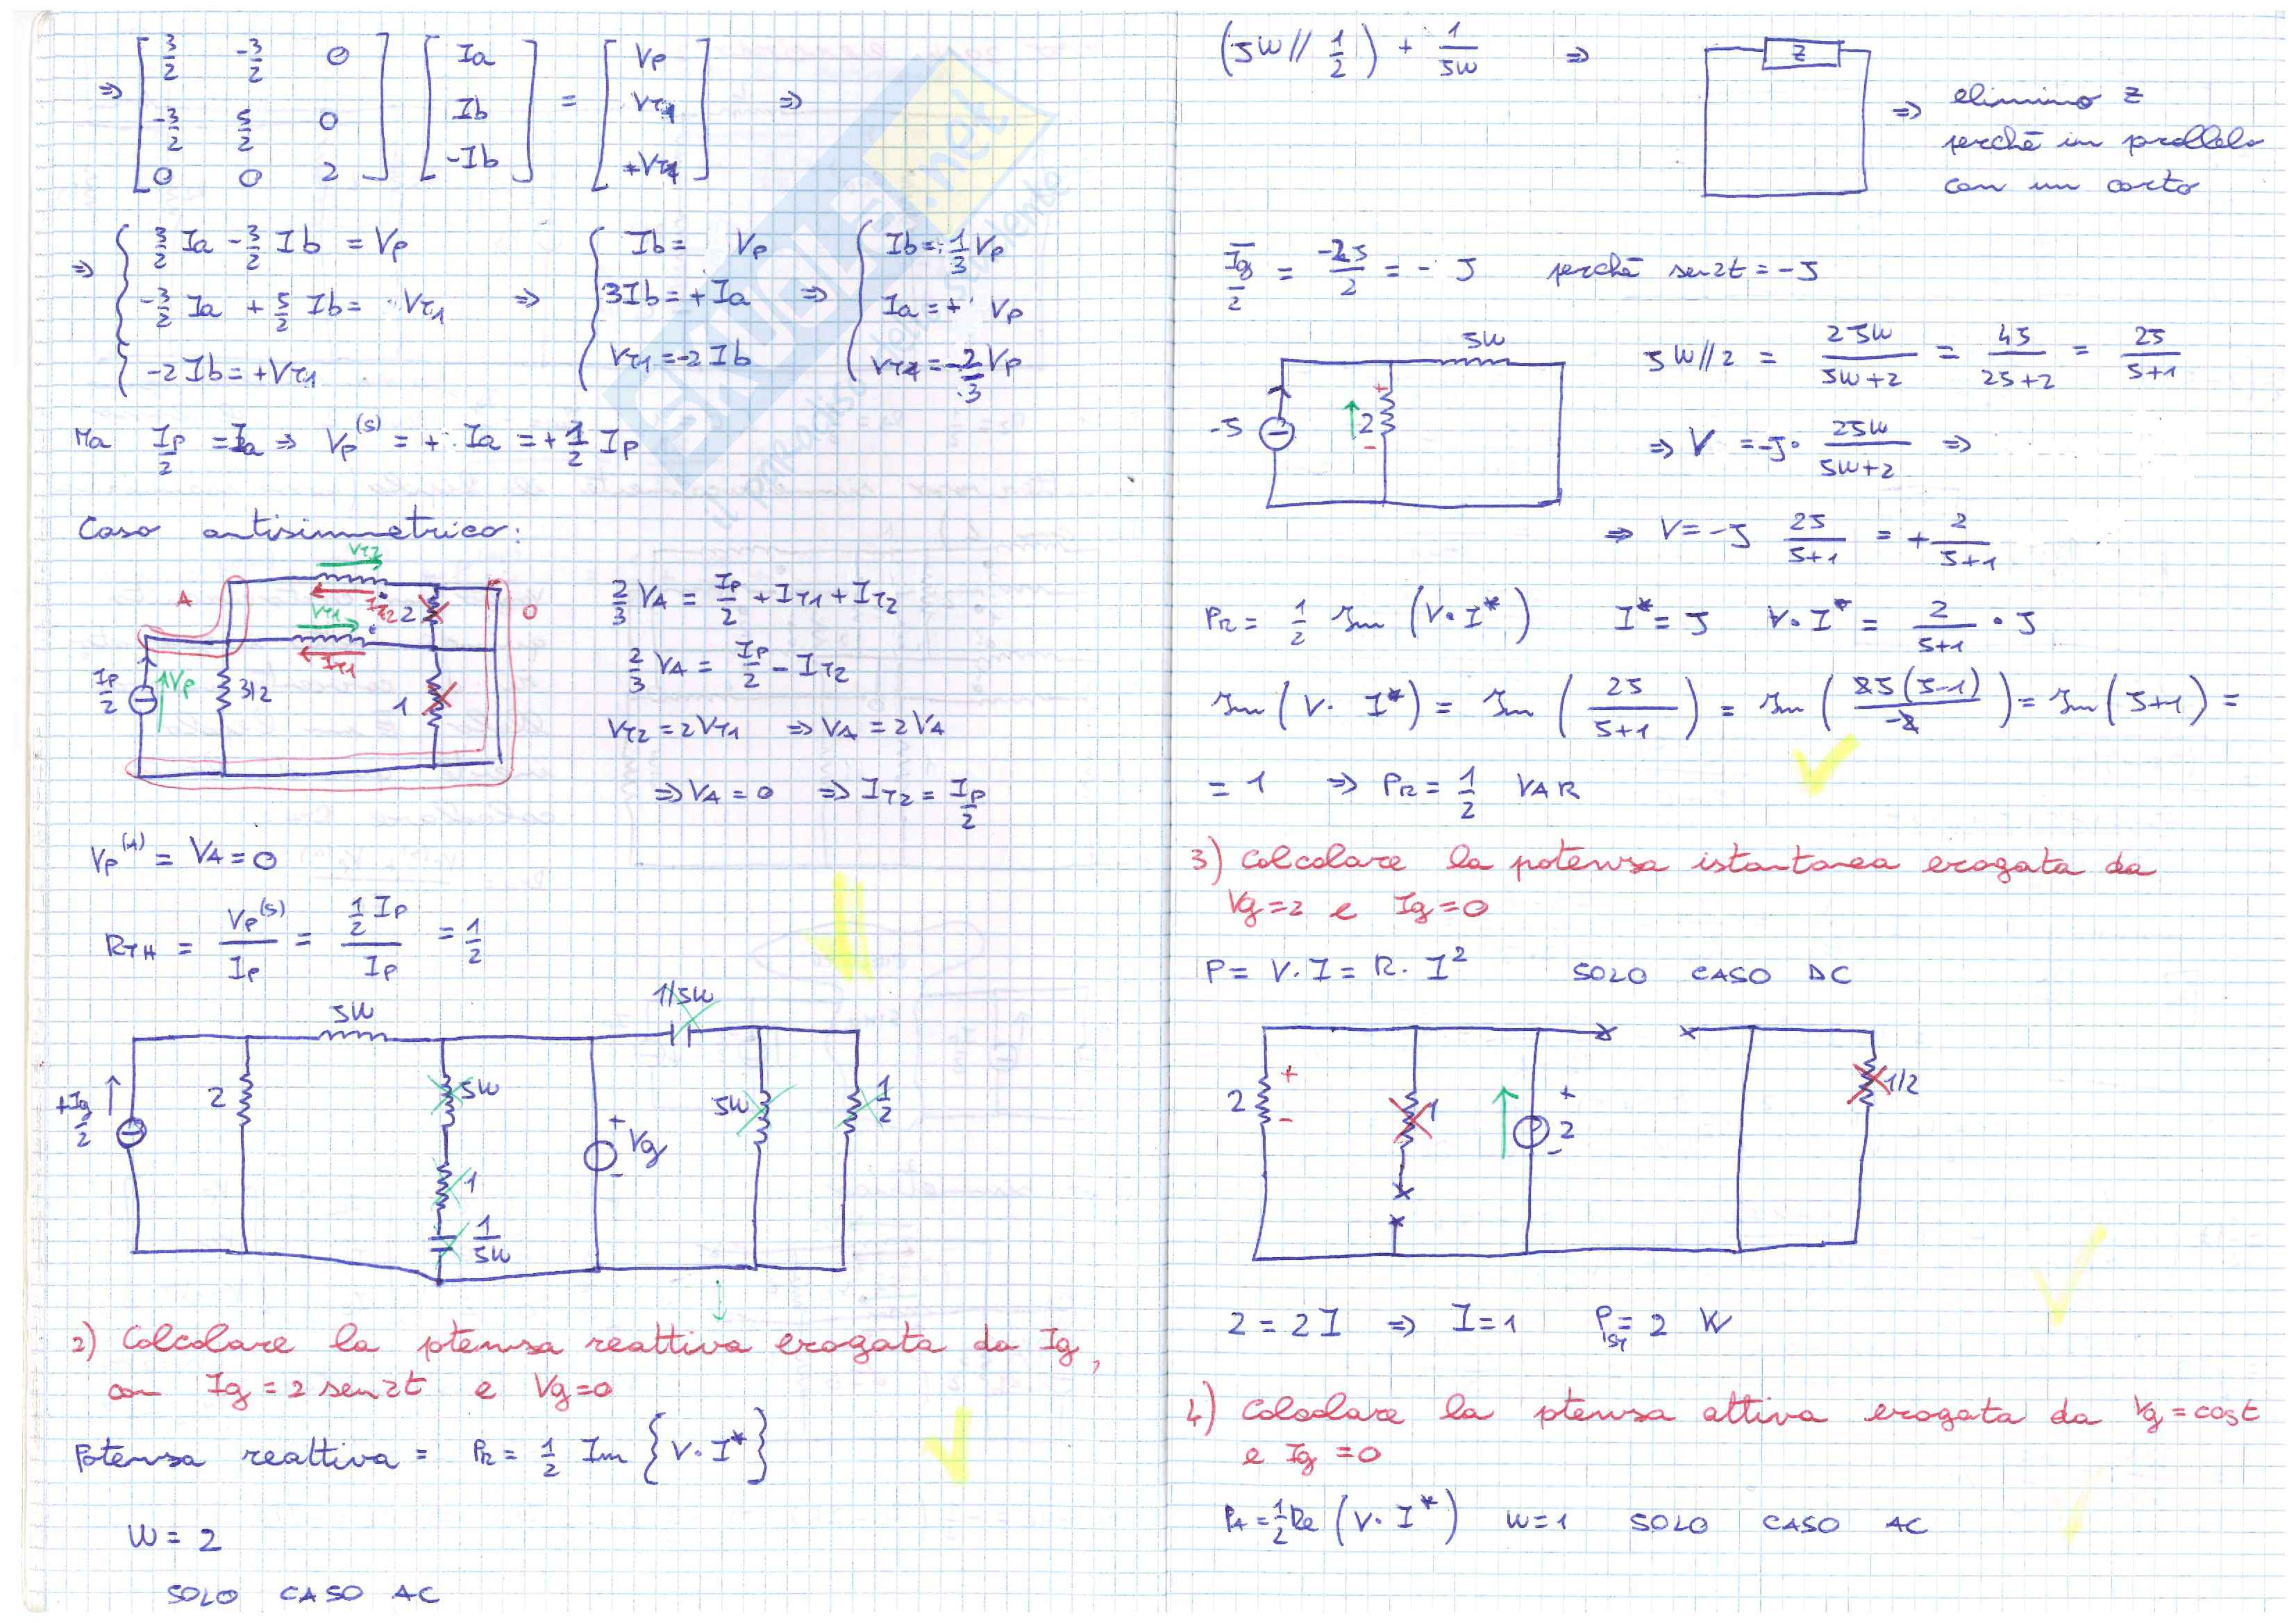 ⇒ [ 3/2 -3/2 0 ] [ Ia ] = [ Vp ] ⇒
[ -3/2 5/2 0 ] [ Ib ] [ Vτ1 ]
[ 0 0 2 ] [ -Ib ] [ +Vτ1 ]
⇒ { 3/2 Ia - 3/2 Ib = Vp { Ib = Vp { Ib = -1/3 Vp
-3/2 Ia + 5/2 Ib = Vτ1 ⇒ 3Ib = +Ia ⇒ Ia = + Vp
-2Ib = +Vτ1 Vτ1 = -2Ib Vτ1 = -2/3 Vp
Ma Ip/2 = Ia ⇒ Vp^(s) = + Ia = + 1/2 Ip
Caso antisimmetrico:
Vτ2
A Iτ2 2 O
Vτ1
Iτ1
Ip/2 1Vp 3/2 1
2/3 VA = Ip/2 + Iτ1 + Iτ2
2/3 VA = Ip/2 - Iτ2
Vτ2 = 2Vτ1 ⇒ VA = 2VA
⇒ VA = 0 ⇒ Iτ2 = Ip/2
Vp^(A) = VA = 0
RTH = Vp^(s)/Ip = 1/2 Ip / Ip = 1/2
JW 1/JW
+Ig/2 2 JW 1 1/JW + Vg - JW 1/2
2) Calcolare la potenza reattiva erogata da Ig,
con Ig = 2 sen2t e Vg=0
Potenza reattiva = PR = 1/2 Im {V·I*}
W = 2
SOLO CASO AC
(JW // 1/2) + 1/JW ⇒ Z ⇒ elimino Z
perchè in parallelo
con un corto
Ig/2 = -2J/2 = -J perchè sen2t = -J
JW
-J 2 + -
JW//2 = 2JW/(JW+2) = 4J/(2J+2) = 2J/(J+1)
⇒ V = -J · 2JW/(JW+2) ⇒
⇒ V = -J 2J/(J+1) = + 2/(J+1)
PR = 1/2 Im (V·I*) I* = J V·I* = 2/(J+1) · J
Im (V· I*) = Im ( 2J/(J+1) ) = Im ( 2J(J-1)/-2 ) = Im (J+1) =
= 1 ⇒ PR = 1/2 VAR
3) Calcolare la potenza istantanea erogata da
Vg=2 e Ig=0
P = V·I = R·I² SOLO CASO DC
2 + - 1 + 2 - 1/2
2 = 2I ⇒ I=1 PIST = 2 W
4) Calcolare la potenza attiva erogata da Vg = cost
e Ig = 0
PA = 1/2 Re (V·I*) W=1 SOLO CASO AC